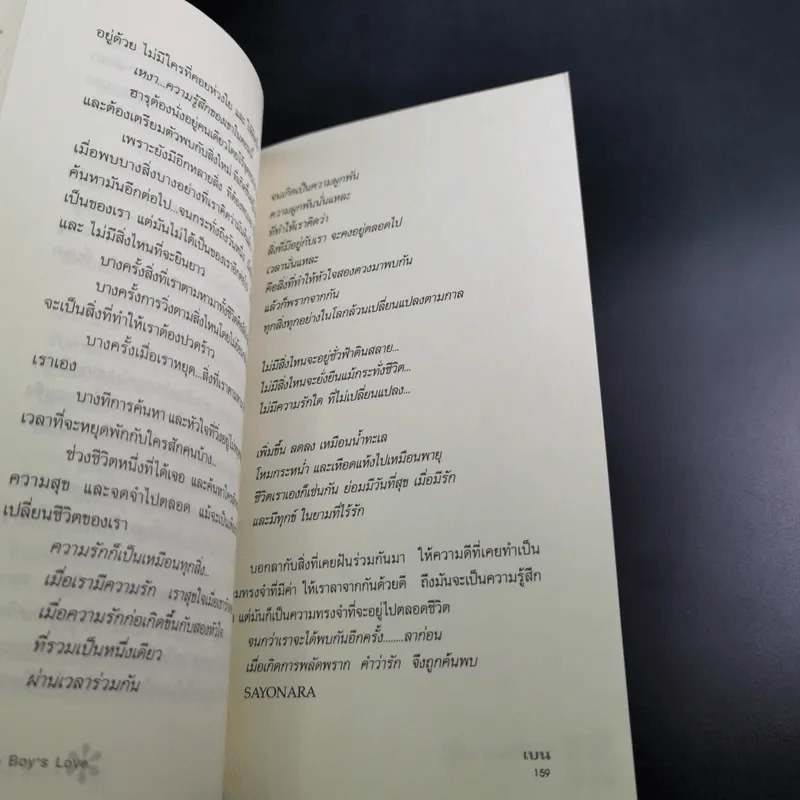 อยู่ด้วย ไม่มีใครที่คอยห่วงใย และ
เหงา...ความรู้สึกของเขาในตอนนี้
ฮารุต้องนั่งอยู่คนเดียวโดยไร้
และต้องเตรียมตัวพบกับสิ่งใหม่
เพราะยังมีอีกหลายสิ่ง ที่ต้อง
เมื่อพบบางสิ่งบางอย่างที่เราคิดว่ามัน
ค้นหามันอีกต่อไป...จนกระทั่งถึงวันหนึ่ง
เป็นของเรา แต่มันไม่ได้เป็นของเราอีก
และ ไม่มีสิ่งไหนที่จะยืนยาว
บางครั้งสิ่งที่เราตามหามาทั้งชีวิต
บางครั้งการวิ่งตามสิ่งไหนโดยไม่
จะเป็นสิ่งที่ทำให้เราต้องปวดร้าว
บางครั้งเมื่อเราหยุด...สิ่งที่เราตามหา
เราเอง
บางทีการค้นหา และหัวใจที่วิ่งอยู่
เวลาที่จะหยุดพักกับใครสักคนบ้าง..
ช่วงชีวิตหนึ่งที่ได้เจอ และค้นหาใคร
ความสุข และจดจำไปตลอด แม้จะเป็น
เปลี่ยนชีวิตของเรา
ความรักก็เป็นเหมือนทุกสิ่ง..
เมื่อเรามีความรัก เราสุขใจเมื่อ
เมื่อความรักก่อเกิดขึ้นกับสองหัวใจ
ที่รวมเป็นหนึ่งเดียว
ผ่านเวลาร่วมกัน
Boy's Love
จนเกิดเป็นความผูกพัน
ความผูกพันนั่นแหละ
ที่ทำให้เราคิดว่า
สิ่งที่มีอยู่กับเรา จะคงอยู่ตลอดไป
เวลานั่นแหละ
คือสิ่งที่ทำให้หัวใจสองดวงมาพบกัน
แล้วก็พรากจากกัน
ทุกสิ่งทุกอย่างในโลกล้วนเปลี่ยนแปลงตามกาล
ไม่มีสิ่งไหนจะอยู่ชั่วฟ้าดินสลาย...
ไม่มีสิ่งไหนจะยั่งยืนแม้กระทั่งชีวิต...
ไม่มีความรักใด ที่ไม่เปลี่ยนแปลง...
เพิ่มขึ้น ลดลง เหมือนน้ำทะเล
โหมกระหน่ำ และเหือดแห้งไปเหมือนพายุ
ชีวิตเราเองก็เช่นกัน ย่อมมีวันที่สุข เมื่อมีรัก
และมีทุกข์ ในยามที่ไร้รัก
บอกลากับสิ่งที่เคยฝันร่วมกันมา ให้ความดีที่เคยทำเป็น
วามทรงจำที่มีค่า ให้เราลาจากกันด้วยดี ถึงมันจะเป็นความรู้สึก
แต่มันก็เป็นความทรงจำที่จะอยู่ไปตลอดชีวิต
จนกว่าเราจะได้พบกันอีกครั้ง........ลาก่อน
เมื่อเกิดการพลัดพราก คำว่ารัก จึงถูกค้นพบ
SAYONARA
เบน
159